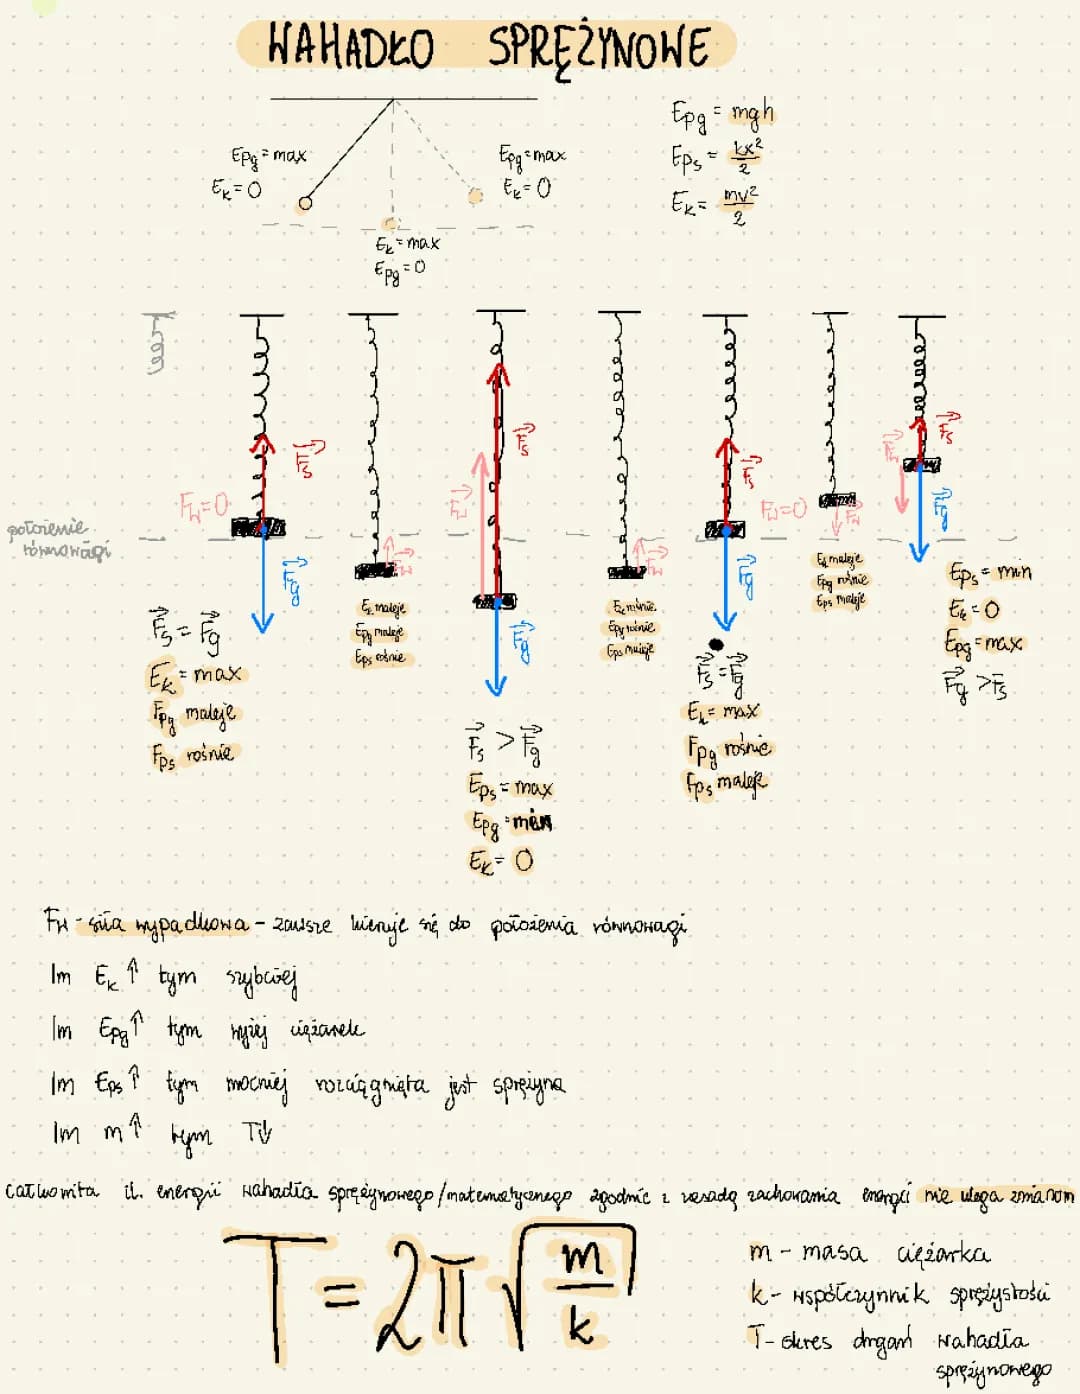 WAHADŁO SPRĘŻYNOWE
Epg = max
Ek = 0
Epg = max
Ek = 0
Ek = max
Epg = 0
Epg = mgh
Eps = kx²/2
Ek = mv²/2
położenie równowagi
Fw = 0
Fs
Fg
Fs = Fg
Ek = max
Fpg maleje
Fps rośnie
Fw
Ek maleje
Epg maleje
Eps rośnie
Fw
Fs
Fg
Fs > Fg
Eps = max
Epg = min
Ek = 0
Fw
Ek rośnie
Epg rośnie
Eps maleje
Fs
Fw = 0
Fg
Fs = Fg
Ek = max
Fpg rośnie
Fps maleje
Fw
Ek maleje
Epg rośnie
Eps maleje
Fw
Fs
Fg
Eps = min
Ek = 0
Epg = max
Fg > Fs
Fw - siła wypadkowa - zawsze kieruje się do położenia równowagi
Im Ek ↑ tym szybciej
Im Epg ↑ tym wyżej ciężarek
Im Eps ↑ tym mocniej rozciągnięta jest sprężyna
Im m ↑ tym T↓
całkowita il. energii wahadła sprężynowego/matematycznego zgodnie z zasadą zachowania energii nie ulega zmianom
T = 2π √m/k
m - masa ciężarka
k - współczynnik sprężystości
T - okres drgań wahadła
sprężynowego